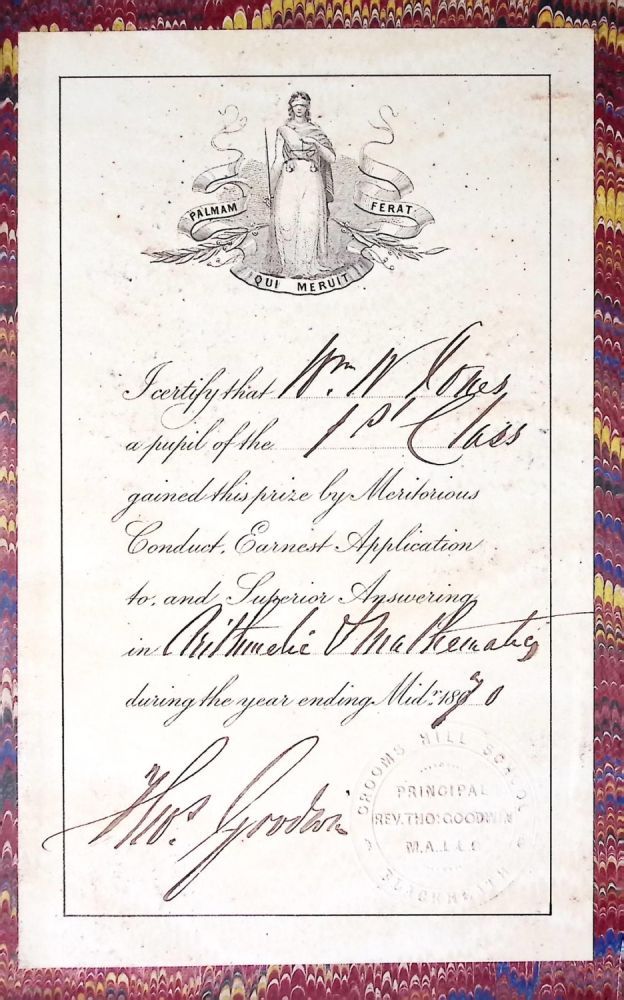 PALMAM
FERAT
QUI MERUIT
I certify that Wm. W Jones
a pupil of the 1st Class
gained this prize by Meritorious
Conduct, Earnest Application
to, and Superior Answering
in Arithmetic & Mathematics
during the year ending Midr. 1870
Thos. Goodwin
GROOMS HILL SCHOOL
PRINCIPAL
REV. THO: GOODWIN
M.A.L.L.D